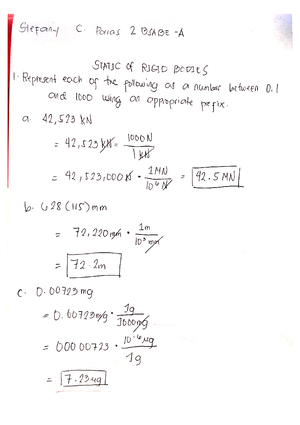 Stefany C. Porras 2 BSABE-A
STATIC OF RIGID BODIES
1. Represent each of the following as a number between 0.1
and 1000 using an appropriate prefix.
a. 42,523 kN
= 42,523 kN · 1000 N / 1 kN
= 42,523,000 N · 1 MN / 10⁶ N = 42.5 MN
b. 628 (115) mm
= 72,220 mm · 1m / 10³ mm
= 72.2m
c. 0.00723 mg
= 0.00723 mg · 1g / 1000mg
= 00000723 · 10⁻⁶ µg / 1g
= 7.23 µg